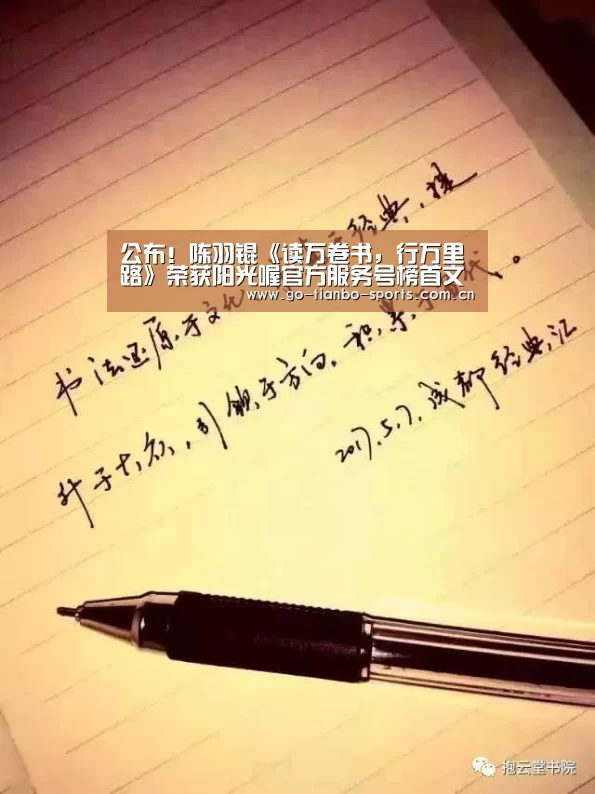 经典,
公布！陈羽锟《读万卷书，行万里
路》荣获阳光喔官方服务号榜首文
www.go-tianbo-sports.com.cn
书法还原于文化
升于大众,引领于方向.积累于
2017.5.7.成都经典汇
抱云堂书院